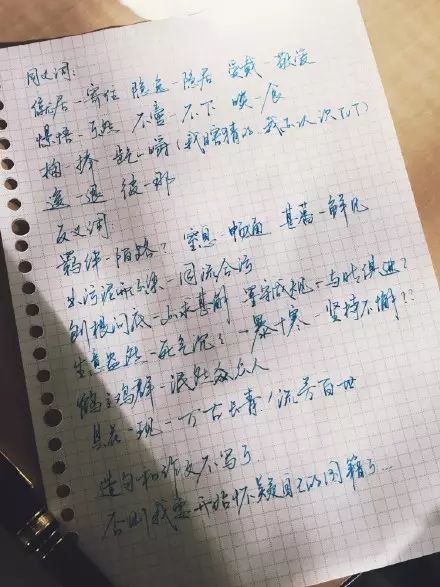 同义词:
僦居-寄住 隐逸-隐居 爱戴-敬爱
憬悟-了然 不啻-不下 啖-食
掬-捧 龁-嚼(我瞎猜的 我不认识TvT)
逡-退 彼-那
反义词
羁绊-陌路? 窒息-畅通 甚蕃-鲜见
出污泥而不染-同流合污
刨根问底-不求甚解 墨守成规-与时俱进?
生意盎然-死气沉沉 一暴十寒-坚持不懈??
鹤立鸡群-泯然众人
昙花一现-万古长青/流芳百世
造句和作文不写了
否则我要开始怀疑自己的国籍了...